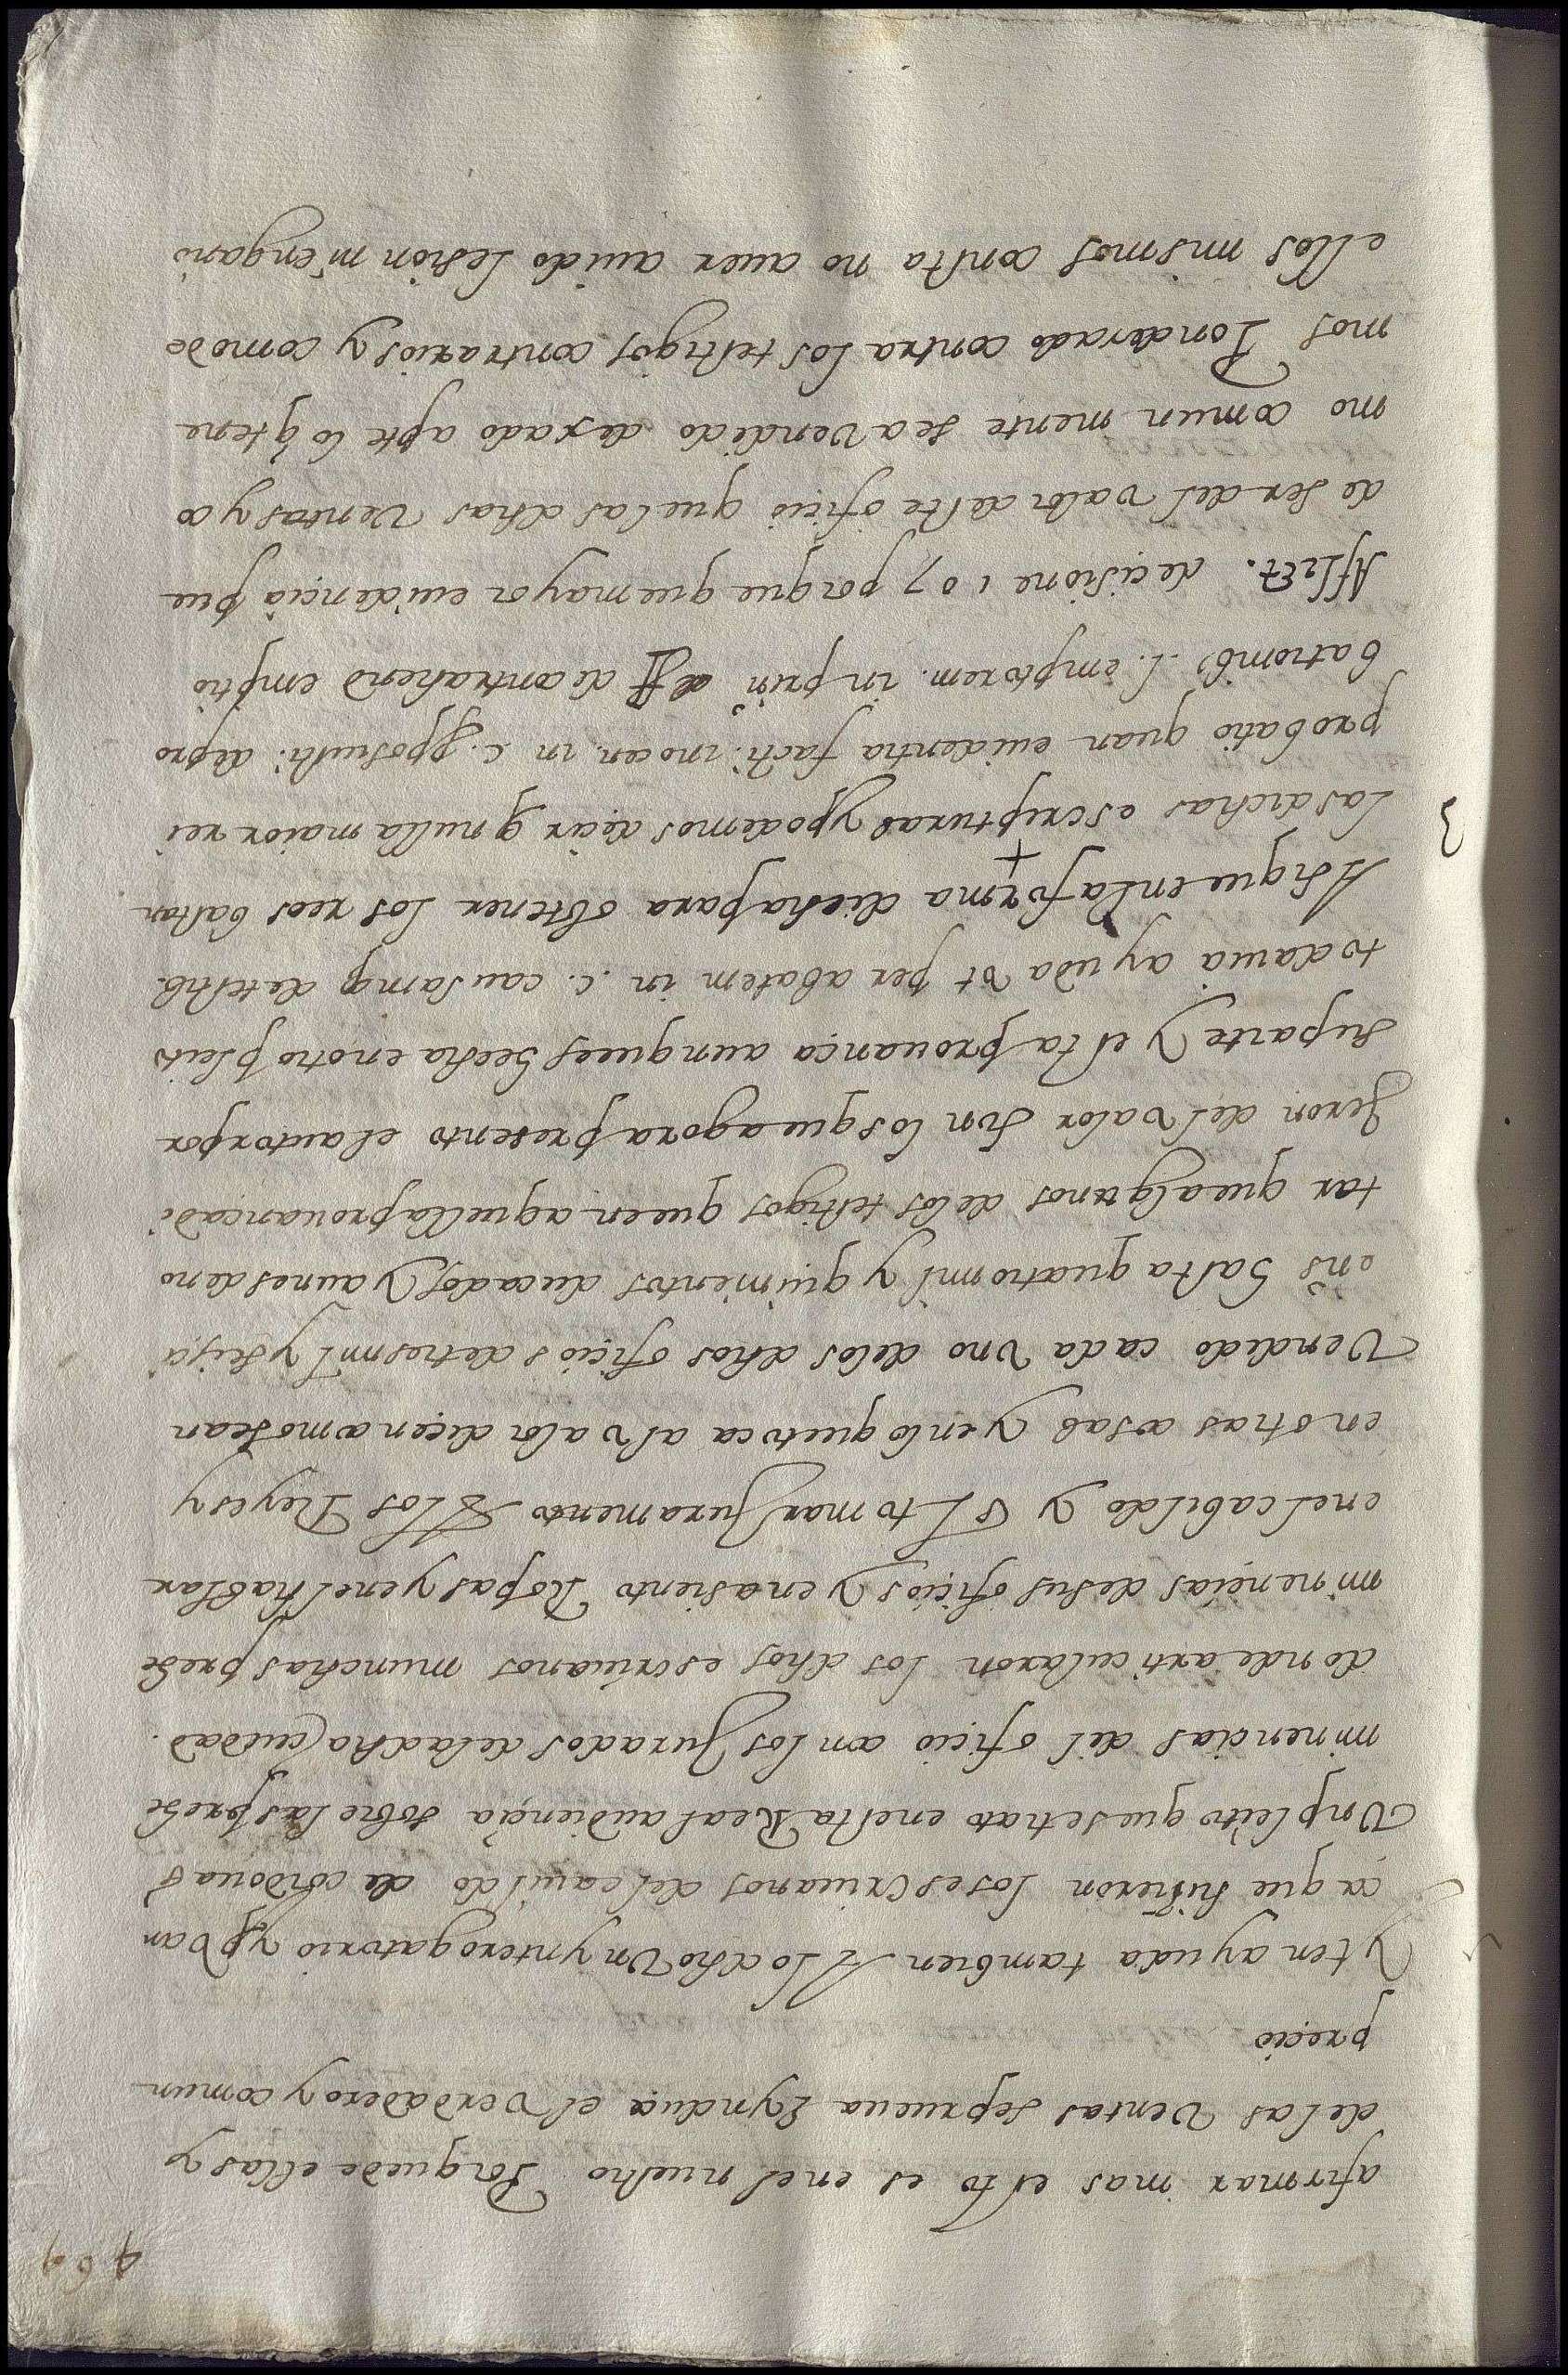 469
afirmar mas esto es en el nuestro Porque de ellas y
de las ventas se prueua Lyndua el verdadero y comun
precio
Yten ayuda tambien A lo dho Un ynterogatorio y pvan
ça que hiçieron los escriuanos del cauildo de cordoua
Un pleito que se trato en esta Real audiençia sobre las prehe
minencias del oficio con los Jurados de la dha ciudad.
donde articularon los dhos escriuanos munchas prehe
minençias de sus ofiçios y en asiento Ropas y en el hablar
en el cabildo y tomar Juramento A los Reyes y
en otras cosas y en lo que toca al valor diçen como se an
Vendido cada Uno de los dhos ofiçios de tres mil y seisçi
ens hasta quatro mil y quinientos ducados y aun es de no
tar que algunos de los testigos que en aquella prouança di
jeron del valor son los que agora presento el autor por
su parte y esta prouança aunque es hecha en otro pleito
todauia ayuda vt per abatem in .c. causamq de testib.
Asi que en la forma dicha para obtener los reos bastan
Las dichas escripturas y podemos deçir q nulla maior rei
probatio quan euidentia facti: inocen. in .c. pposuisti: de pro
bationib, l. emptorem. in prin de contrahend emptio
Afflict. decisione 107 porque que mayor euidençia pue
de ser del valor deste ofiçio que las dhas Ventas y co
mo comun mente se a vendido dexado apte lo q tene
mos Ponderado contra los testigos contrarios y como de
ellos mismos consta no auer auido lesion ni engaño